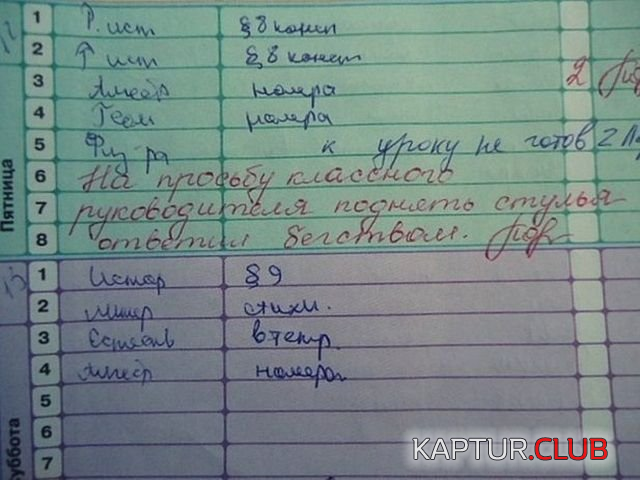 12
1 Р. ист § 8 консп
2 Р ист § 8 консп
3 Алгебр номера 2
4 Геом номера
5 Физ ра к уроку не готов 2
6 На просьбу классного
7 руководителя поднять стулья
8 ответил бегством.
Пятница
13
1 Истор § 9
2 Литер стихи.
3 Естеств в тетр
4 Алгебр номера
5
6
7
Суббота
KAPTUR.CLUB